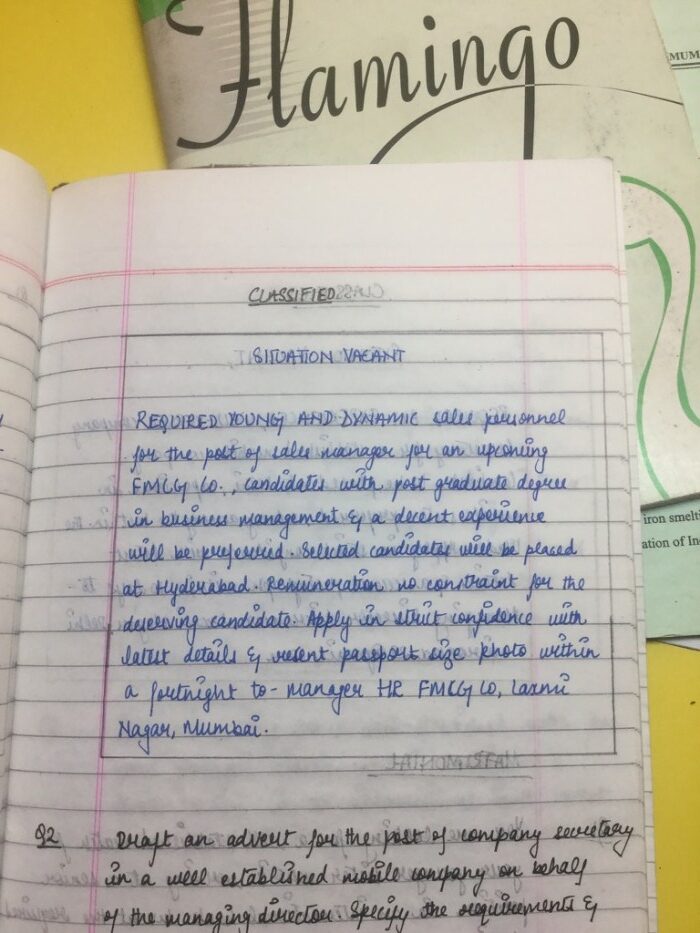 Flamingo
MUM
CLASSIFIED
SITUATION VACANT
REQUIRED YOUNG AND DYNAMIC sales personnel
for the post of sales manager for an upcoming
FMCG CO., candidates with post graduate degree
in business management & a decent experience
will be preferred. Selected candidates will be placed
at Hyderabad. Remuneration no constraint for the
deserving candidate. Apply in strict confidence with
latest details & recent passport size photo within
a fortnight to - manager HR FMCG CO, Laxmi
Nagar, Mumbai.
iron smelti
ation of In
MATRIMONIAL
Q2 Draft an advert for the post of company secretary
in a well established mobile company on behalf
of the managing director. Specify the requirements &